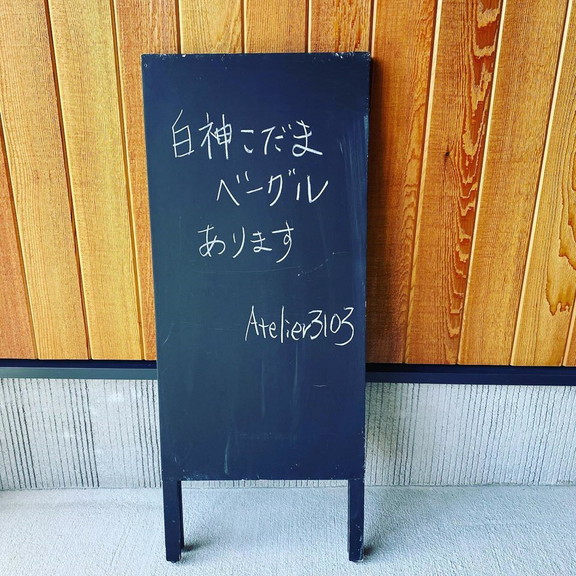 白神こだま
ベーグル
あります
Atelier3103